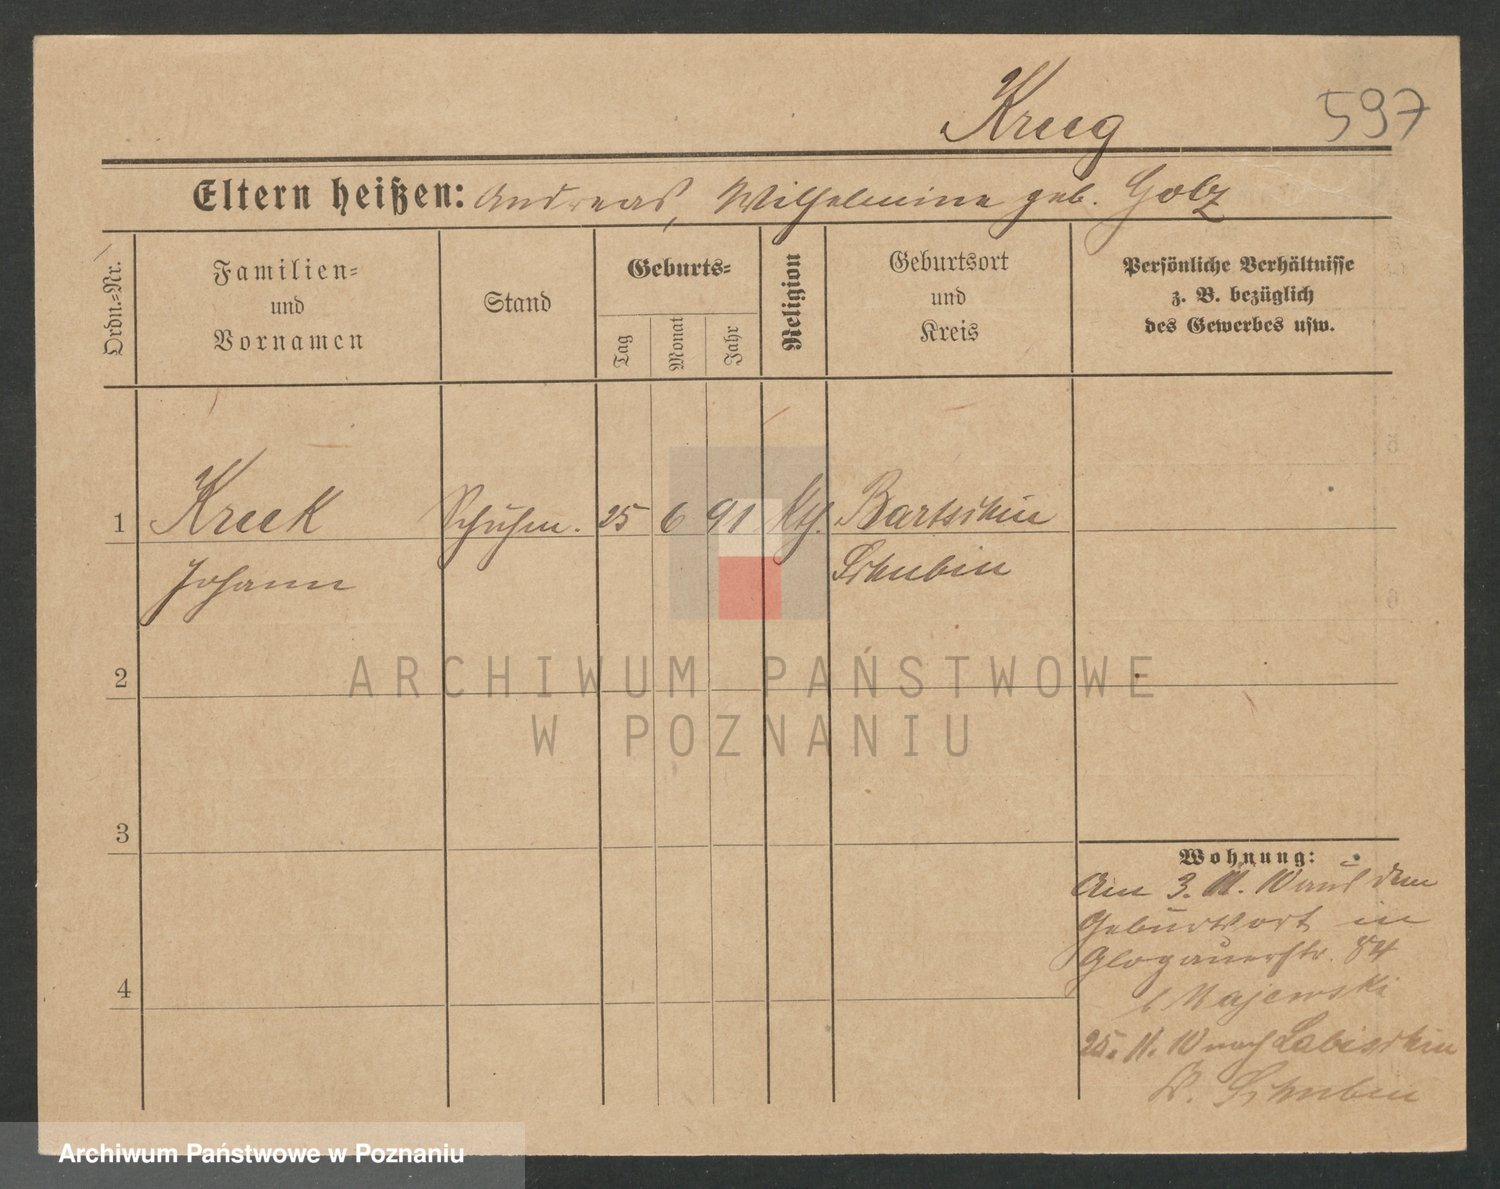 Kreeg
597
Eltern heißen: Andreas, Wilhelmine geb. Golz
Ordn.-Nr.
Familien-
und
Vornamen
Stand
Geburts-
Tag
Monat
Jahr
Religion
Geburtsort
und
Kreis
Persönliche Verhältnisse
z. B. bezüglich
des Gewerbes usw.
1 Kreek Schuhm. 25 6 91 Kth. Bartschin
Johann Schubin
2
3
4
Wohnung:
Am 3. 11. 10 aus dem
Geburtsort in
Glogauerstr. 84
b Majewski
25. 11. 10 nach Labischin
K. Schubin
ARCHIWUM PAŃSTWOWE
W POZNANIU
Archiwum Państwowe w Poznaniu